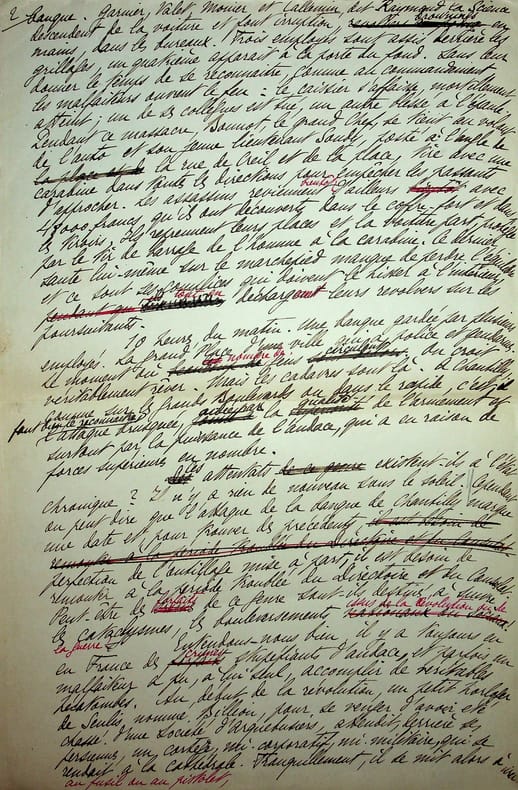 2 banque. Garnier, Valet, Monier et Callemin, dit Raymond la Science
descendent de la voiture et font irruption, brownings en
mains, dans les bureaux. Trois employés sont assis derrière les
grillages, un quatrième apparaît à la porte du fond. Sans leur
donner le temps de se reconnaître comme au commandement,
les malfaiteurs ouvrent le feu : le caissier s'affaisse, mortellement
atteint ; un de ses collègues est tué, un autre blessé à l'épaule.
Pendant ce massacre, Bonnot, le grand Chef, se tient au volant
de l'auto et son jeune lieutenant Soudy, posté à l'angle de
la rue de Creil et de la place, tire avec une
carabine dans toutes les directions pour empêcher les passants
d'approcher. Les assassins reviennent bientôt d'ailleurs avec
48000 francs qu'ils ont découverts dans le coffre-fort et dans
les tiroirs. Ils reprennent leurs places et la voiture part, protégée
par le tir de barrage de l'homme à la carabine. Ce dernier,
sauté lui-même sur le marchepied manque de perdre l'équilibre
et ce sont ses complices qui doivent le hisser à l'intérieur
déchargent leurs revolvers sur les
poursuivants.
10 heures du matin. Une banque gardée par plusieurs
employés. La grand place d'une ville police et gendarmes
le moment où nombre de gens circulent. On croit
véritablement rêver. Mais les cadavres sont là. à Chantilly
comme sur les grands Boulevards ou dans le rapide, c'est, il
faut bien le reconnaître
l'attaque brusquée, la qualité de l'armement et
surtout par la puissance de l'audace, qui a eu raison de
forces supérieures en nombre.
attentats existent-ils à l'état
chronique ? Il n'y a rien de nouveau sous le soleil. Cependant
on peut dire que l'attaque de la banque de Chantilly marque
une date et pour trouver des précédents,
perfection de l'outillage mise à part, il est besoin de
remonter à la période troublée du Directoire et du Consulat.
Peut-être les forfaits de ce genre sont-ils destinés à suivre
les cataclysmes les bouleversements, issus de la Révolution ou de
la guerre
Entendons-nous bien, il y a toujours eu
en France des crimes stupéfiants d'audace, et parfois un
malfaiteur a pu, à lui seul, accomplir de véritables
hécatombes. Au début de la révolution, un petit horloger
de Senlis, nommé Billon, pour se venger d'avoir été
chassé d'une société d'arquebusiers, attendit, derrière ses
persiennes, un cortège, mi-corporatif, mi-militaire, qui se
rendait à la cathédrale. Tranquillement, il se mit alors à tirer
au fusil ou au pistolet,